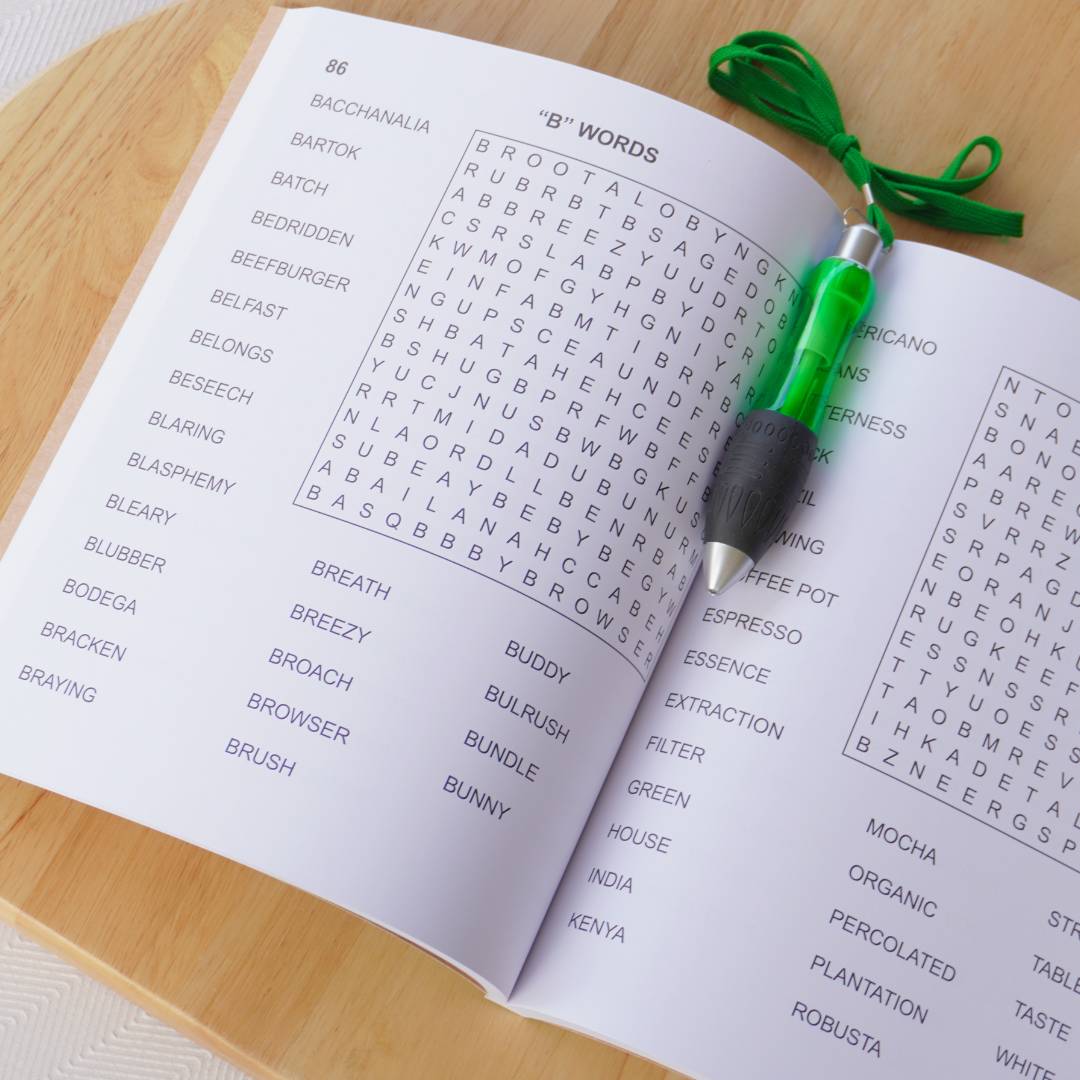 86
"B" WORDS
BACCHANALIA
BARTOK
BATCH
BEDRIDDEN
BEEFBURGER
BELFAST
BELONGS
BESEECH
BLARING
BLASPHEMY
BLEARY
BLUBBER
BODEGA
BRACKEN
BRAYING
B R O O T A L O B Y N G K N
R U B R B T B S A G E D O B
A B B R E E Z Y U U D R T O
C S R S L A B P B Y D C R I
K W M O F G Y H G N I Y A R
E I N F A B M T I B R R B C
N G U P S C E A U N D F R E
S H B A T A H E H C E E S
B S H U G B P R F W B F F B
Y U C J N U S B W B G K U S
R R T M I D A D U B U N U R M
N L A O R D L L B E N R B A B
S U B E A Y B E B Y B E G Y W
A B A I L A N A H C C A B E H
B A S Q B B B Y B R O W S E R
BREATH
BREEZY
BROACH
BROWSER
BRUSH
BUDDY
BULRUSH
BUNDLE
BUNNY
ERICANO
ANS
TERNESS
CK
ZIL
WING
FFEE POT
ESPRESSO
ESSENCE
EXTRACTION
FILTER
GREEN
HOUSE
INDIA
KENYA
N T O
S N A B
B O N O
A A R E
P B R E W
S V R R Z
S R P A G D
E O R A N J
N B E O H K
R U G K E E F
E S S N S S R
T T Y U O E S S
T A O B M R E V
I H K A D E T A L
B Z N E E R G S P
MOCHA
ORGANIC
PERCOLATED
PLANTATION
ROBUSTA
STR
TABLE
TASTE
WHITE